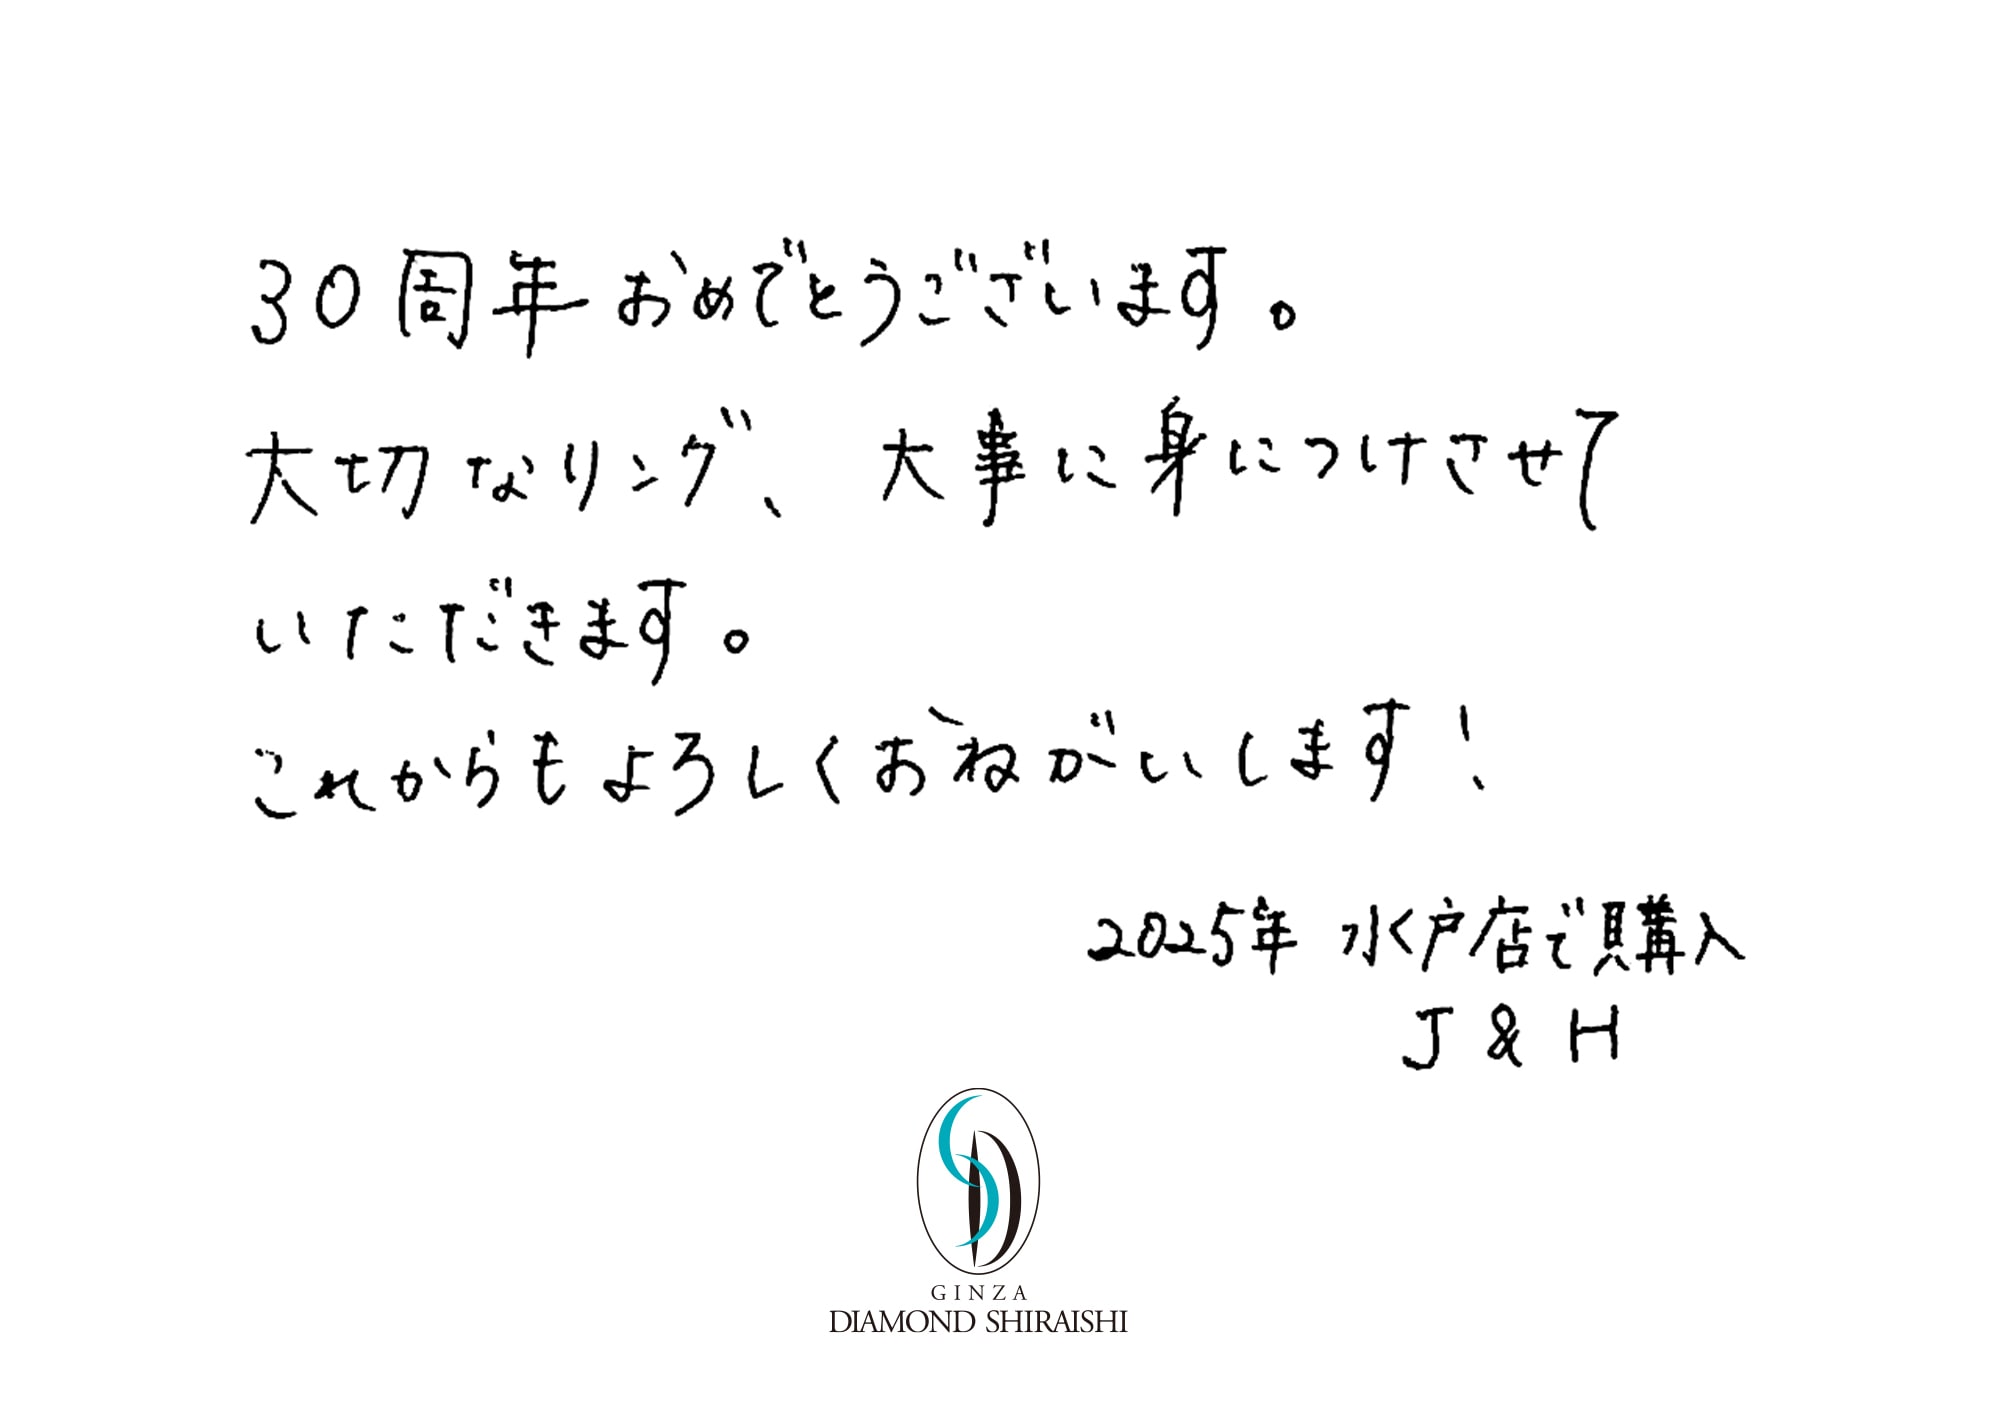 30周年おめでとうございます。
大切なリング、大事に身につけさせて
いただきます。
これからもよろしくおねがいします！
2025年 水戸店で購入
J & H
GINZA
DIAMOND SHIRAISHI